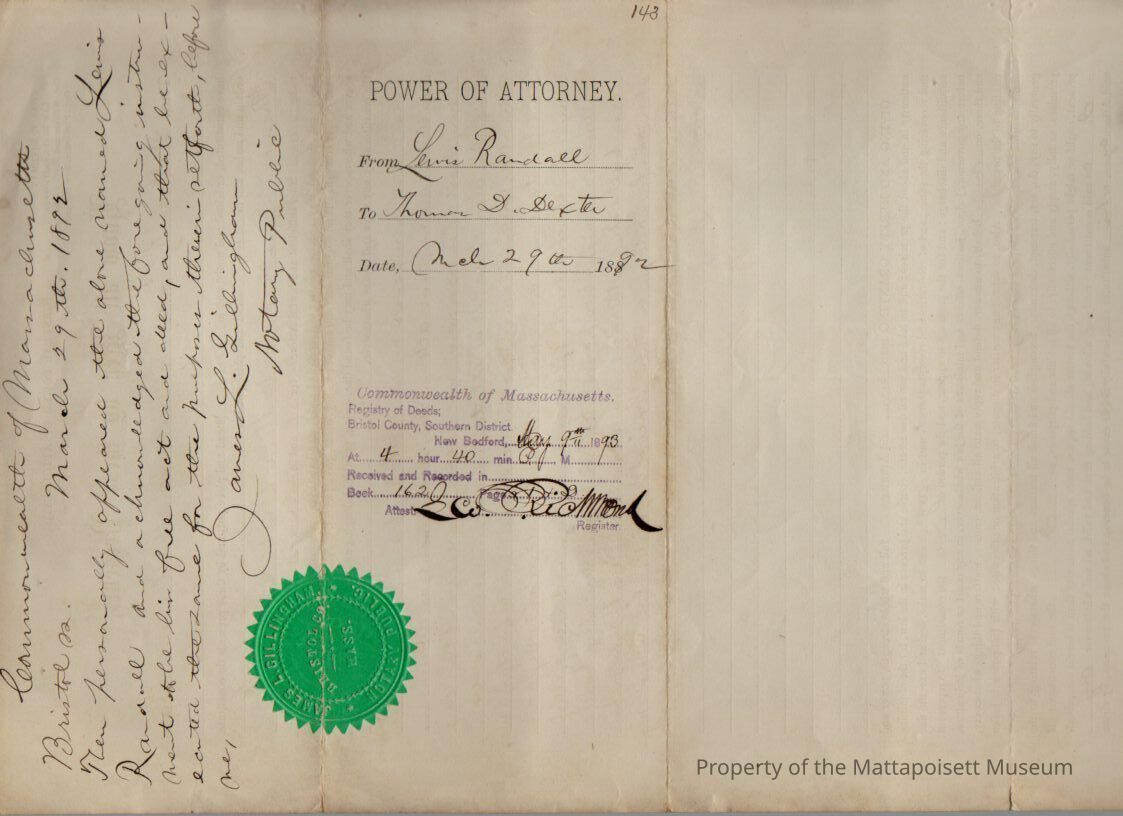 143
Commonwealth of Massachusetts
Bristol ss. March 29th. 1892
Then personally appeared the above named Lewis
Randall and acknowledged the foregoing instru-
ment to be his free act and deed, and that he ex-
ecuted the same for the purposes therein set forth, before
me,
James L. Gillingham
Notary Public
POWER OF ATTORNEY.
From Lewis Randall
To Thomas D. Dexter
Date, Mch 29th 1892
Commonwealth of Massachusetts.
Registry of Deeds;
Bristol County, Southern District.
New Bedford, May 9th 1893
At 4 hour 40 min P M.
Received and Recorded in
Book 162 Page
Attest: Richmond
Register.
JAMES L. GILLINGHAM
NOTARY PUBLIC
BRISTOL CO.
MASS.
Property of the Mattapoisett Museum